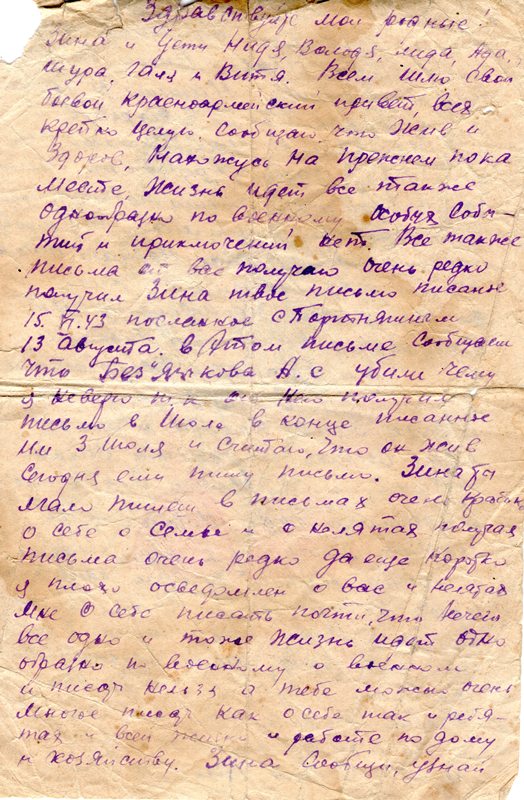 Здравствуйте мои родные!
Зина и дети Надя, Володя, Лида, Ада,
Шура, Галя и Витя. Всем шлю свой
боевой красноармейский привет, всех
крепко целую. Сообщаю, что жив и
здоров, нахожусь на прежнем пока
месте, жизнь идет все также
однобразно по военному особых собы-
тий и приключений нет. Все также
письма от вас получаю очень редко
получил Зина твое письмо писаное
15. 43 посланное с
13 августа. в этом письме сообщаеш
что А.С убили чему
я неверю т.к. от него получил
письмо в Июле в конце писанное
им 3 июля и считаю, что он жив
сегодня ему пишу письмо. Зина ты
мало пишеш в письмах очень кратко
о себе о семье и о получая
письма очень редко да еще коротко
я плохо осведомлен о вас и
мне о себе писать почти, что нечего
все одно и тоже жизнь идет одно
образно по военному о военном
и писать нельзя а тебе можно очень
многое писать как о себе так и ребя-
тах и всей жизни и работе по дому
и хозяйству. Зина сообщи, узнай